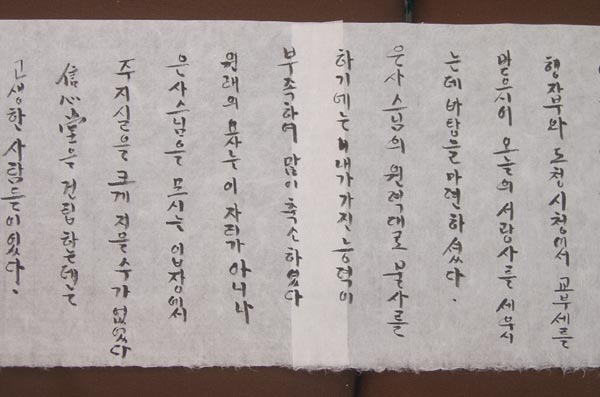 행자부와 도청시청에서 교부세를
받으시어 오늘의 서광사를 세우시
는데 바탕을 마련하셨다.
은사 스님의 원력대로 불사를
하기에는 내가 가진 능력이
부족하여 많이 축소하였다
원래의 요사는 이 자리가 아니나
은사스님을 모시는 입장에서
주지실을 크게 지을 수가 없었다
信心堂을 건립하는데는
고생한 사람들이 있다.